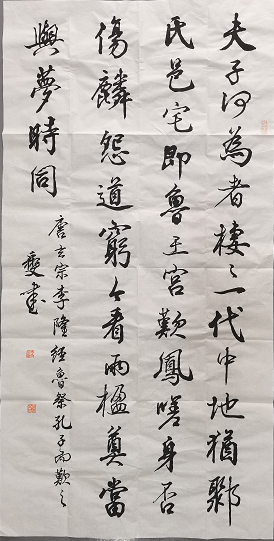 夫子何為者棲々一代中地猶鄹
氏邑宅即魯王宮歎鳳嗟身否
傷麟怨道窮今看兩楹奠當
與夢時同
唐玄宗李隆經魯祭孔子而歎之
書